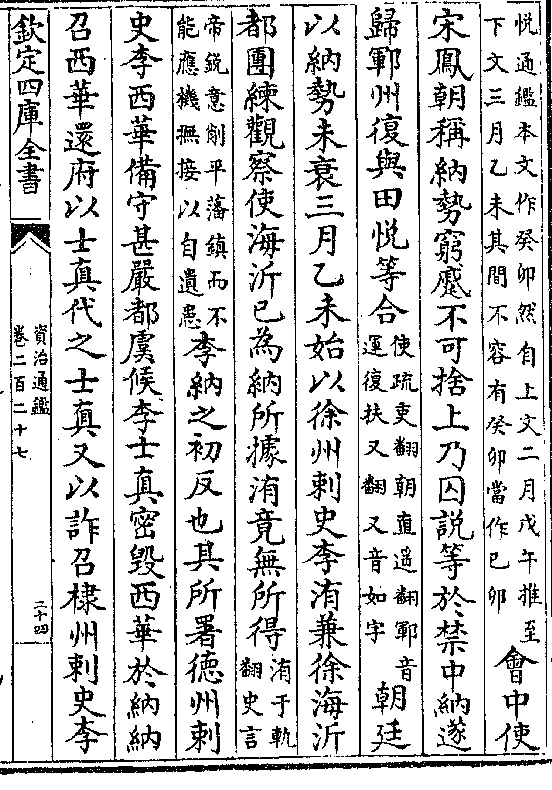 悦通鑑本文作癸卯然自上文二月戊午推至
下文三月乙未其間不容有癸卯當作已卯
會中使
宋鳳朝稱納勢窮蹙不可捨上乃囚説等於禁中納遂
歸鄆州復與田悦等合
使疏吏翻朝直遥翻鄆音
運復扶又翻又音如字
朝廷
以納勢未衰三月乙未始以徐州刺史李洧兼徐海沂
都團練觀察使海沂已為納所據洧竟無所得
洧于軌
翻史言
帝鋭意削平藩鎮而不
能應機撫接以自遺患
李納之初反也其所署德州刺
史李西華備守甚嚴都虞候李士真密毁西華於納納
召西華還府以士真代之士真又以詐召棣州刺史李
欽定四庫全書
資治通鑑
卷二百二十七
二十四